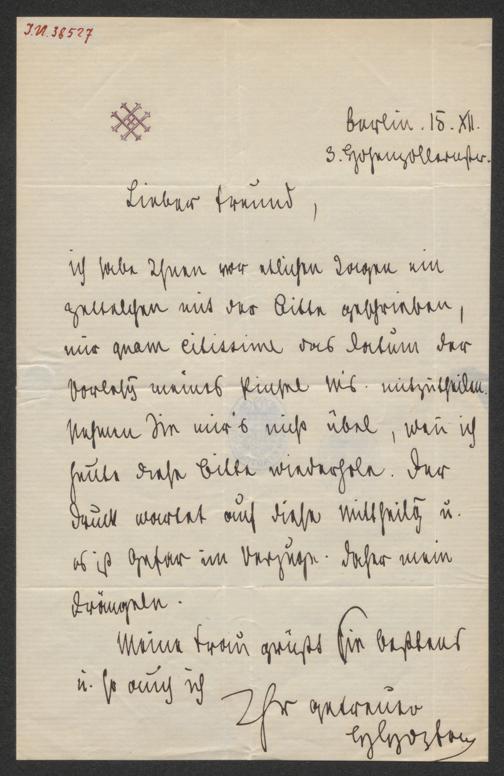 J.N. 36527
Berlin. 15. XII.
3. Hohenzollernstr.
Lieber Freund,
ich habe Ihnen vor etlichen Tagen ein
Zettelchen mit der Bitte geschrieben,
mir quam citissime das Datum der
Vorlesg meines Pinsel Ms. mitzutheilen.
Nehmen Sie mir's nicht übel, wen̄ ich
heute diese Bitte wiederhole. Der
Druck wartet auf diese Mittheilg u.
es ist Gefar im Verzuge. Daher mein
Drängeln.
Meine Frau grüßt Sie bestens
u. so auch ich
Ihr getreuer